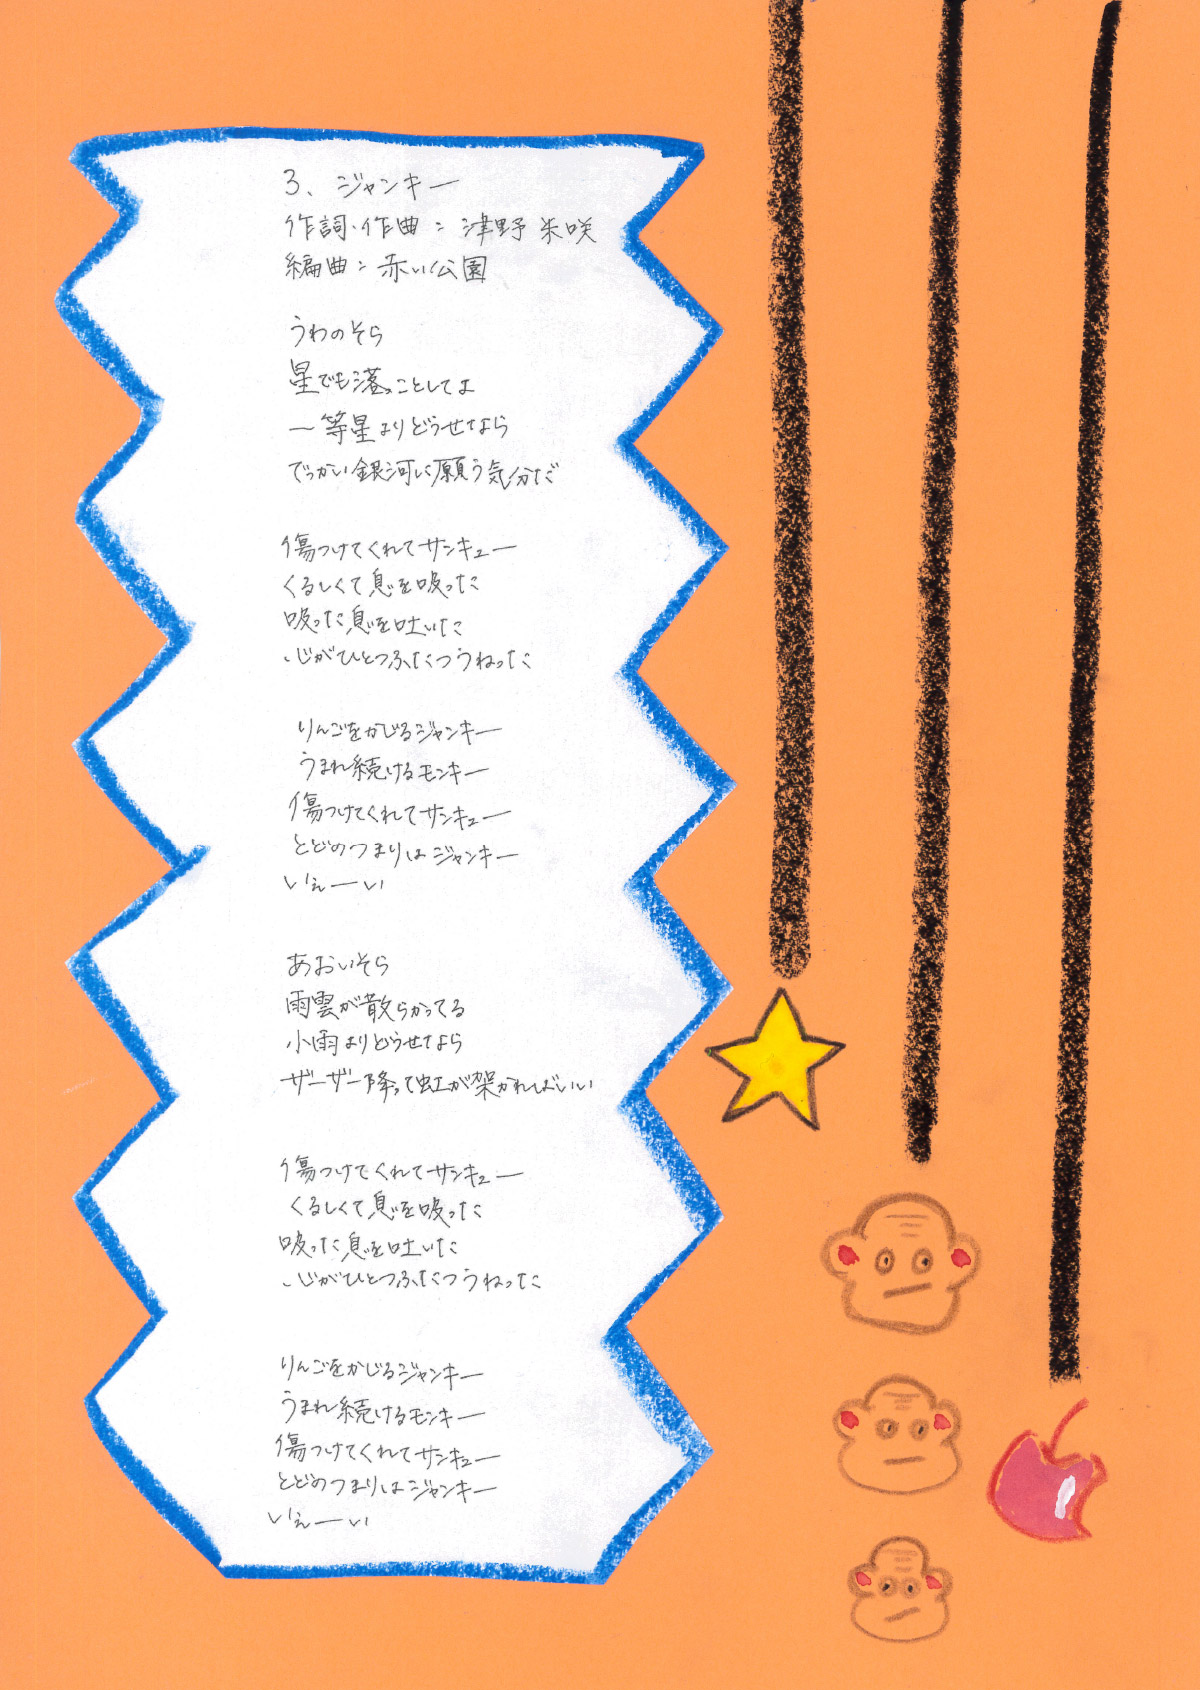 3、ジャンキー
作詞・作曲：津野米咲
編曲：赤い公園
うわのそら
星でも落っことしてよ
一等星よりどうせなら
でっかい銀河に願う気分だ
傷つけてくれてサンキュー
くるしくて息を吸った
吸った息を吐いた
心がひとつふたつうねった
りんごをかじるジャンキー
うまれ続けるモンキー
傷つけてくれてサンキュー
とどのつまりはジャンキー
いぇーい
あおいそら
雨雲が散らかってる
小雨よりどうせなら
ザーザー降って虹が架かればいい
傷つけてくれてサンキュー
くるしくて息を吸った
吸った息を吐いた
心がひとつふたつうねった
りんごをかじるジャンキー
うまれ続けるモンキー
傷つけてくれてサンキュー
とどのつまりはジャンキー
いぇーい